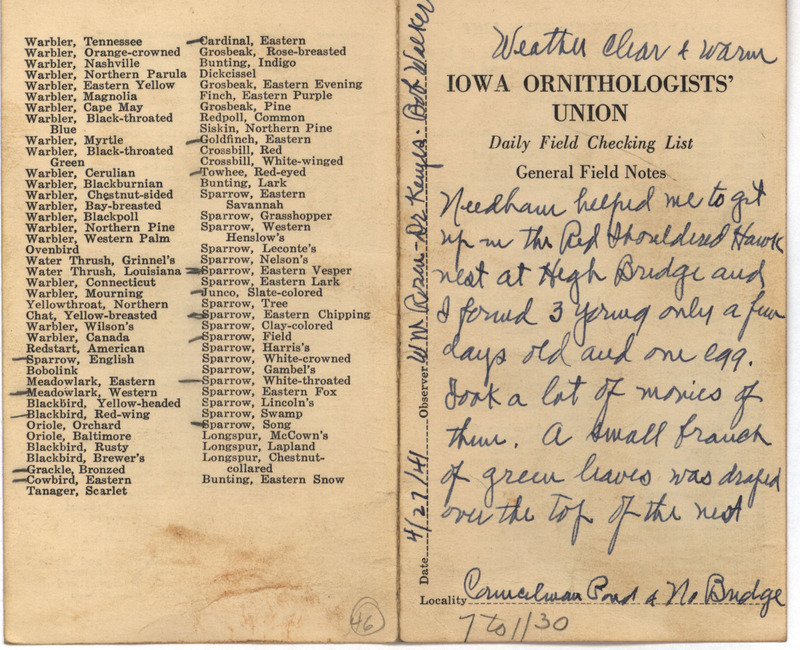 Warbler, Tennessee
Warbler, Orange-crowned
Warbler, Nashville
Warbler, Northern Parula
Warbler, Eastern Yellow
Warbler, Magnolia
Warbler, Cape May
Warbler, Black-throated
Blue
Warbler, Myrtle
Warbler, Black-throated
Green
Warbler, Cerulian
Warbler, Blackburnian
Warbler, Chestnut-sided
Warbler, Bay-breasted
Warbler, Blackpoll
Warbler, Northern Pine
Warbler, Western Palm
Ovenbird
Water Thrush, Grinnel's
Water Thrush, Louisiana
Warbler, Connecticut
Warbler, Mourning
Yellowthroat, Northern
Chat, Yellow-breasted
Warbler, Wilson's
Warbler, Canada
Redstart, American
Sparrow, English
Bobolink
Meadowlark, Eastern
Meadowlark, Western
Blackbird, Yellow-headed
Blackbird, Red-wing
Oriole, Orchard
Oriole, Baltimore
Blackbird, Rusty
Blackbird, Brewer's
Grackle, Bronzed
Cowbird, Eastern
Tanager, Scarlet
Cardinal, Eastern
Grosbeak, Rose-breasted
Bunting, Indigo
Dickcissel
Grosbeak, Eastern Evening
Finch, Eastern Purple
Grosbeak, Pine
Redpoll, Common
Siskin, Northern Pine
Goldfinch, Eastern
Crossbill, Red
Crossbill, White-winged
Towhee, Red-eyed
Bunting, Lark
Sparrow, Eastern
Savannah
Sparrow, Grasshopper
Sparrow, Western
Henslow's
Sparrow, Leconte's
Sparrow, Nelson's
Sparrow, Eastern Vesper
Sparrow, Eastern Lark
Junco, Slate-colored
Sparrow, Tree
Sparrow, Eastern Chipping
Sparrow, Clay-colored
Sparrow, Field
Sparrow, Harris's
Sparrow, White-crowned
Sparrow, Gambel's
Sparrow, White-throated
Sparrow, Eastern Fox
Sparrow, Lincoln's
Sparrow, Swamp
Sparrow, Song
Longspur, McCown's
Longspur, Lapland
Longspur, Chestnut-
collared
Bunting, Eastern Snow
46
Date 4/27/41 Observer Wm Rosen - Dr. Keyes - Bob Walker
Weather clear & warm
IOWA ORNITHOLOGISTS'
UNION
Daily Field Checking List
General Field Notes
Needham helped me to get
up in the Red Shouldered Hawk
nest at High Bridge and
I found 3 young only a few
days old and one egg.
Took a lot of movies of
them. A small branch
of green leaves was draped
over the top of the nest
Locality Councilman Pond & No Bridge
7 to 1130